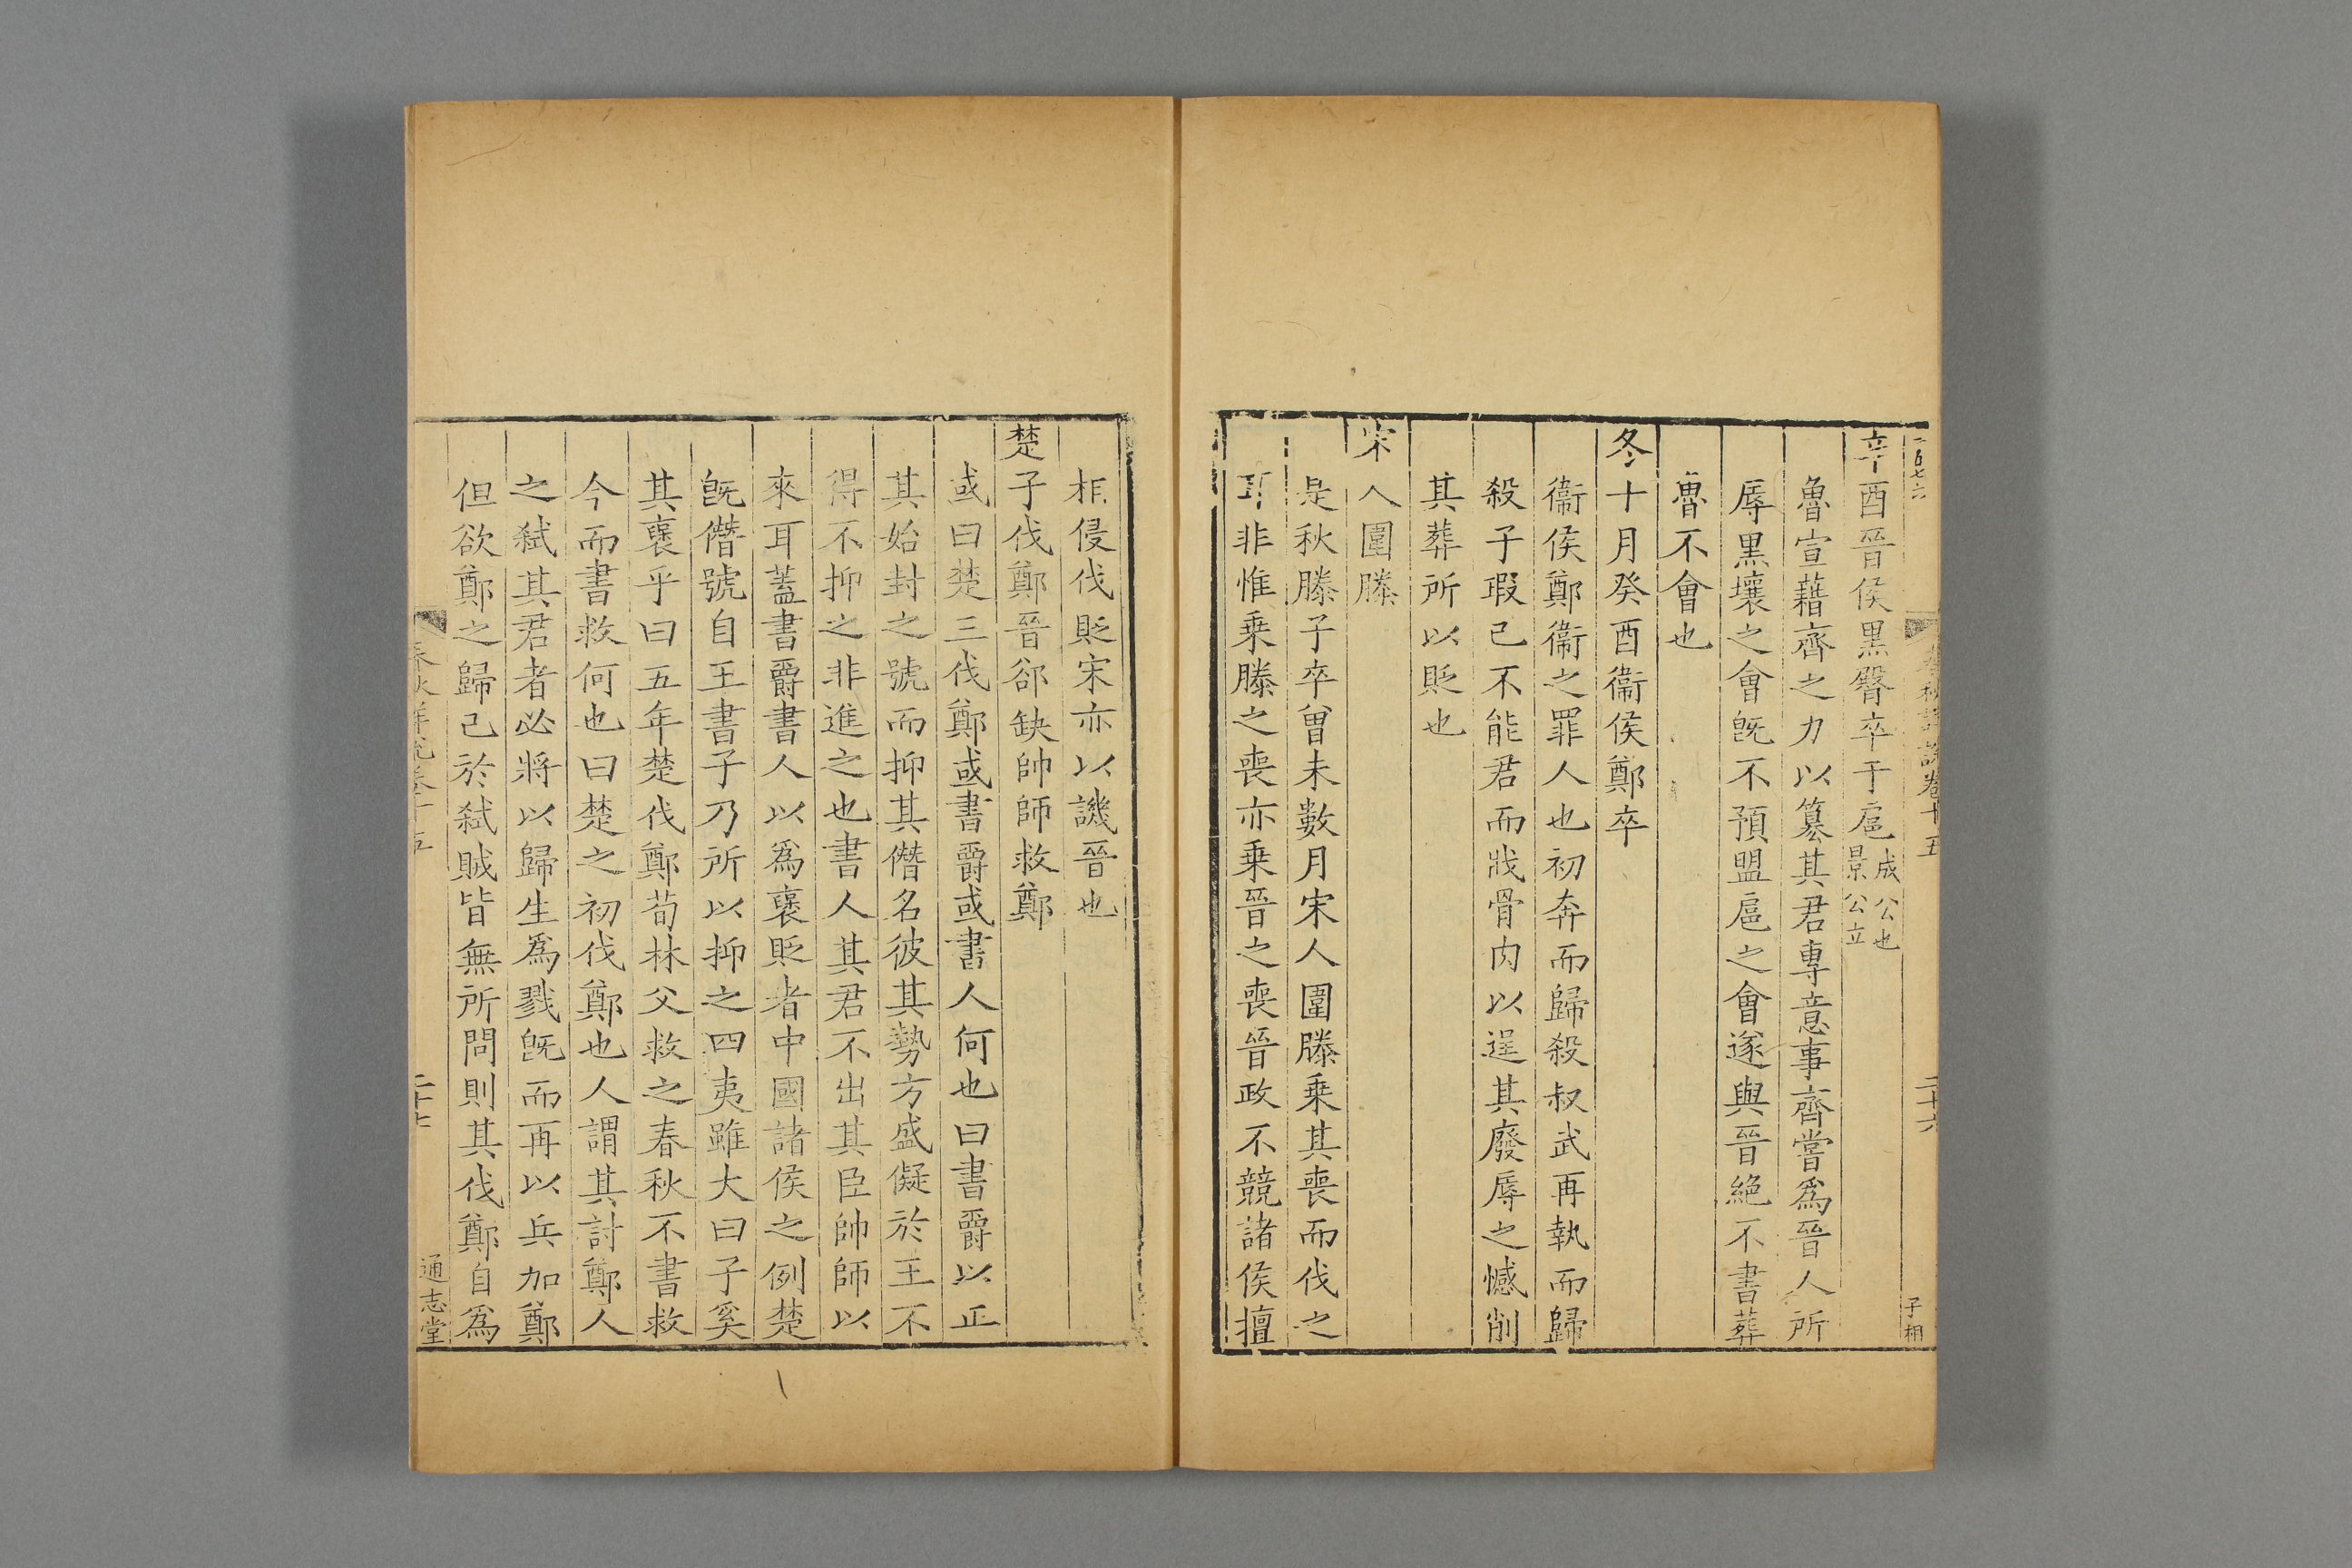 辛酉晉侯黑臀卒于扈成公也景公立
魯宣藉齊之力以簒其君專意事齊嘗爲晉人所
辱黑壤之會旣不預盟扈之會遂與晉絕不書葬
魯不會也
冬十月癸酉衞侯鄭卒
衞侯鄭衞之罪人也初奔而歸殺叔武再執而歸
殺子瑕己不能君而戕骨肉以逞其廢辱之憾削
其葬所以貶也
宋人圍滕
是秋滕子卒曾未數月宋人圍滕乗其喪而伐之
耳非惟乗滕之喪亦乗晉之喪晉政不競諸侯擅
相侵伐貶宋亦以譏晉也
楚子伐鄭晉郤缺帥師救鄭
或曰楚三伐鄭或書爵或書人何也曰書爵以正
其始封之號而抑其僭名彼其勢方盛儗於王不
得不抑之非進之也書人其君不出其臣帥師以
來耳蓋書爵書人以爲襃貶者中國諸侯之例楚
旣僭號自王書子乃所以抑之四夷雖大曰子奚
其襃乎曰五年楚伐鄭荀林父救之春秋不書救
今而書救何也曰楚之初伐鄭也人謂其討鄭人
之弑其君者必將以歸生爲戮旣而再以兵加鄭
但欲鄭之歸己於弑賊皆無所問則其伐鄭自爲
春秋詳說卷十五
二十七
通志堂
一百七六
春秋詳說卷十五
二十六
子相